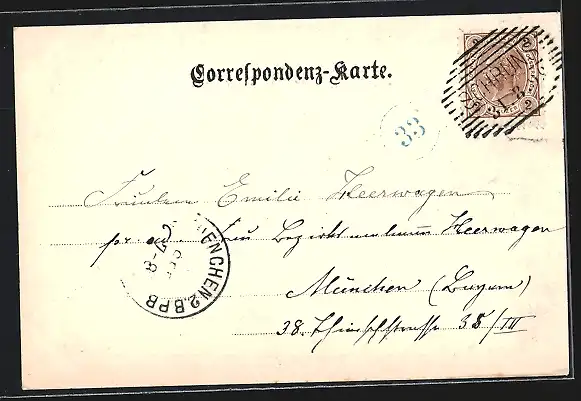 Correspondenz-Karte.
33
Fräulein Emilie Heerwagen
pr. ad. Frau Bezirks Heerwagen
München (Bayern)
38. Thierschstrasse 38/III
MUENCHEN 2.B.P.B
7-8